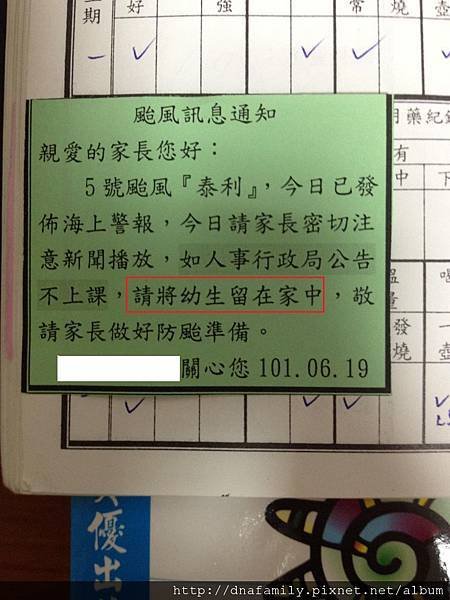 期
好
強
常
燒
壺
一
月藥紀錄
有
中
下
颱風訊息通知
親愛的家長您好：
5號颱風『泰利』，今日已發
佈海上警報，今日請家長密切注
意新聞播放，如人事行政局公告
不上課，請將幼生留在家中，敬
請家長做好防颱準備。
關心您 101.06.19
溫
量
發
燒
一
壺
優出
http://dnafamily.pixnet.net/album